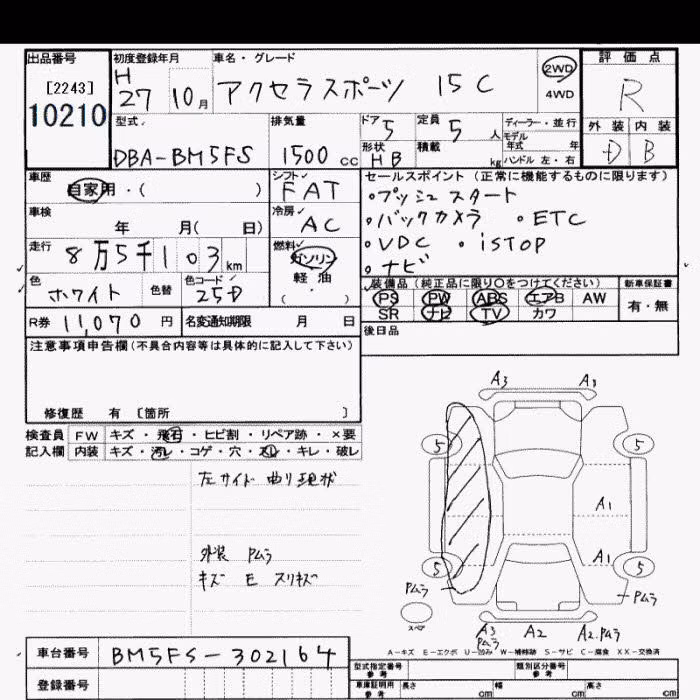 出品番号
[2243]
10210
初度登録年月
H
27 10月
車名・グレード
アクセラスポーツ 15C
2WD
4WD
評価点
R
外装 内装
D B
型式
DBA-BM5FS
排気量
1500 cc
ドア 5
定員 5 人
形状 HB
積載 kg
ディーラー・並行
モデル
年式 年
ハンドル 左・右
車歴
自家用・( )
シフト
FAT
車検
年 月( 日)
冷房
AC
走行
8万5千103 km
燃料
ガソリン
軽油
( )
色
ホワイト
色替
色コード
25D
R券 11,070 円
名変通知期限 月 日
セールスポイント(正常に機能するものに限ります)
・プッシュスタート
・バックカメラ ・ETC
・VDC ・iSTOP
・ナビ
装備品(純正品に限り○をつけてください)
PS PW ABS エアB AW
SR ナビ TV カワ
新車保証書
有・無
後日品
注意事項申告欄(不具合内容等は具体的に記入して下さい)
修復歴 有 〔箇所 〕
検査員 FW キズ・飛石・ヒビ割・リペア跡・×要
記入欄 内装 キズ・汚レ・コゲ・穴・スレ・キレ・破レ
左サイド曲り現状
外装 Pムラ
キズ E スリキズ
A3 A3
5 5
A1
A1
5 5
Pムラ Pムラ
スペア
A3
Pムラ
A2 A2.Pムラ
A-キズ E-エクボ U-凹み W-補修跡 S-サビ C-腐食 XX-交換済
車台番号
BM5FS-302164
登録番号
型式指定番号
参考
類別区分番号
参考
車庫証明用
参考
長さ cm 幅 cm 高さ cm